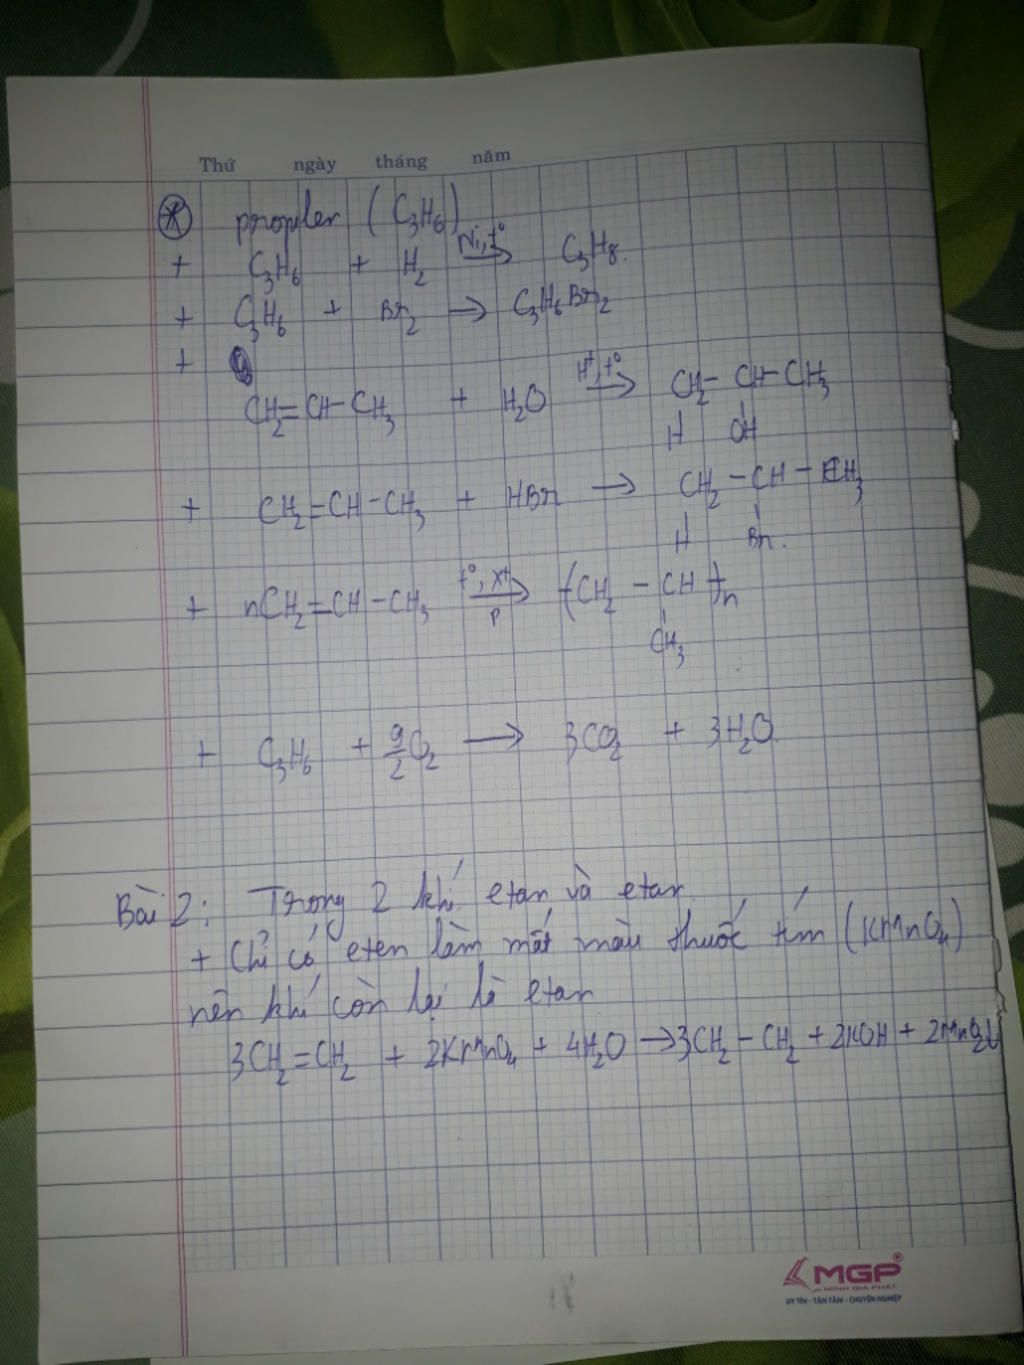 Thứ ngày tháng năm
* propilen (C3H6)
+ C3H6 + H2 Ni, t° → C3H8.
+ C3H6 + Br2 → C3H6Br2
+
CH2=CH-CH3 + H2O H+, t° → CH2- CH- CH3
H OH
+ CH2=CH-CH3 + HBr → CH2 - CH - CH3
H Br.
+ nCH2=CH-CH3 t°, xt → (CH2 - CH)n
p
CH3
+ C3H6 + 9/2 O2 → 3CO2 + 3H2O
Bài 2: Trong 2 khí etan và etan.
+ Chỉ có eten làm mất màu thuốc tím (KMnO4)
nên khí còn lại là etan
3CH2=CH2 + 2KMnO4 + 4H2O → 3CH2-CH2 + 2KOH + 2MnO2↓
MGP®
MINH GIA PHÁT
UY TÍN - TẬN TÂM - CHUYÊN NGHIỆP